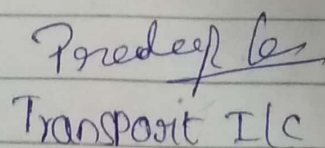 Pradeep
Transport I/C